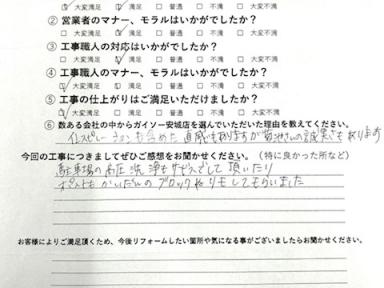 □大変満足 ☑満足 □普通 □不満 □大変不満
② 営業者のマナー、モラルはいかがでしたか？
□大変満足 ☑満足 □普通 □不満 □大変不満
③ 工事職人の対応はいかがでしたか？
□大変満足 ☑満足 □普通 □不満 □大変不満
④ 工事職人のマナー、モラルはいかがでしたか？
☑大変満足 □満足 □普通 □不満 □大変不満
⑤ 工事の仕上がりはご満足いただけましたか？
☑大変満足 □満足 □普通 □不満 □大変不満
⑥ 数ある会社の中からガイソー安城店を選んでいただいた理由を教えてください。
インスピレーションも含めた直感もありますが菊池さんの誠実さもあります
今回の工事につきましてぜひご感想をお聞かせください。（特に良かった所など）
駐車場の高圧洗浄もサービスして頂いたり
ポストもかいだんのブロックやりもしてもらいました
お客様によりご満足頂くため、今後リフォームしたい箇所や気になる事がございましたらお聞かせください。